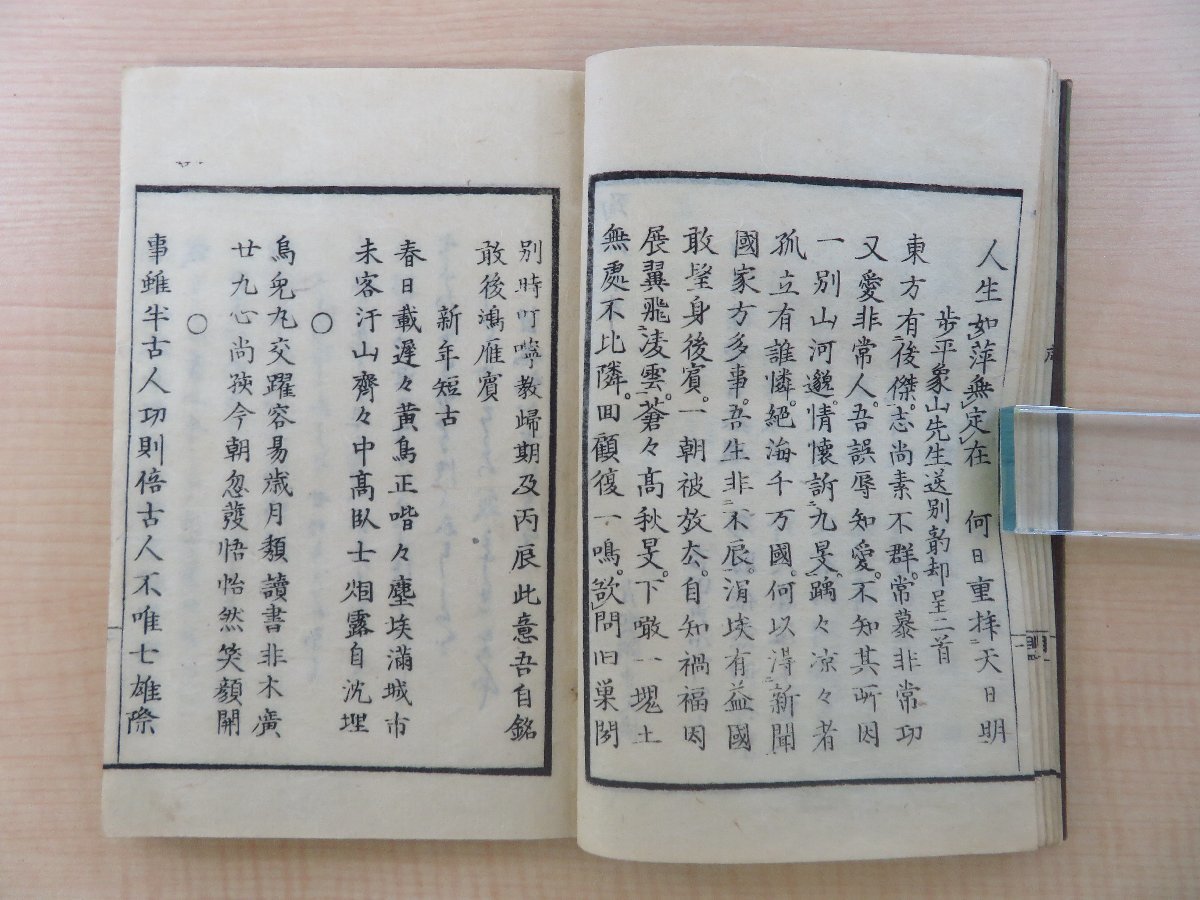 人生如萍無定在　何日重拝天日明
步平象山先生送別韵却呈二首
東方有後傑。志尚素不群。常慕非常功
又愛非常人。吾誤辱知愛。不知其所因
一別山河邈。情懷訴九旻。踽々凉々者
孤立有誰憐。絕海千万國。何以得新聞
國家方多事。吾生非不辰。涓埃有益國
敢望身後賓。一朝被放厺。自知禍福因
展翼飛凌雲。蒼々高秋旻。下噉一塊土
無處不比隣。回顧復一鳴。欲問旧巣閉
別時叮嚀教歸期及丙辰此意吾自銘
敢後鴻雁賓
新年短古
春日載遲々黄鳥正喈々塵埃滿城市
未容汙山齊々中髙臥士烟露自沈埋
〇
烏兔丸交躍容易歲月頽讀書非木廣
廿九心尚莢今朝忽發悟怡然笑顔開
〇
事雖半古人功則倍古人不唯七雄際